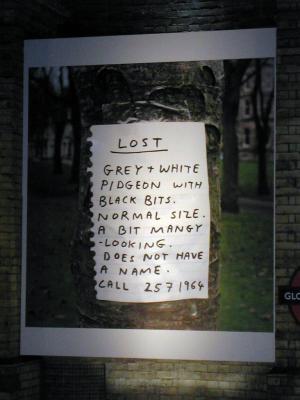 LOST
GREY + WHITE
PIDGEON WITH
BLACK BITS.
NORMAL SIZE.
A BIT MANGY
-LOOKING.
DOES NOT HAVE
A NAME.
CALL 257 1964
GLO